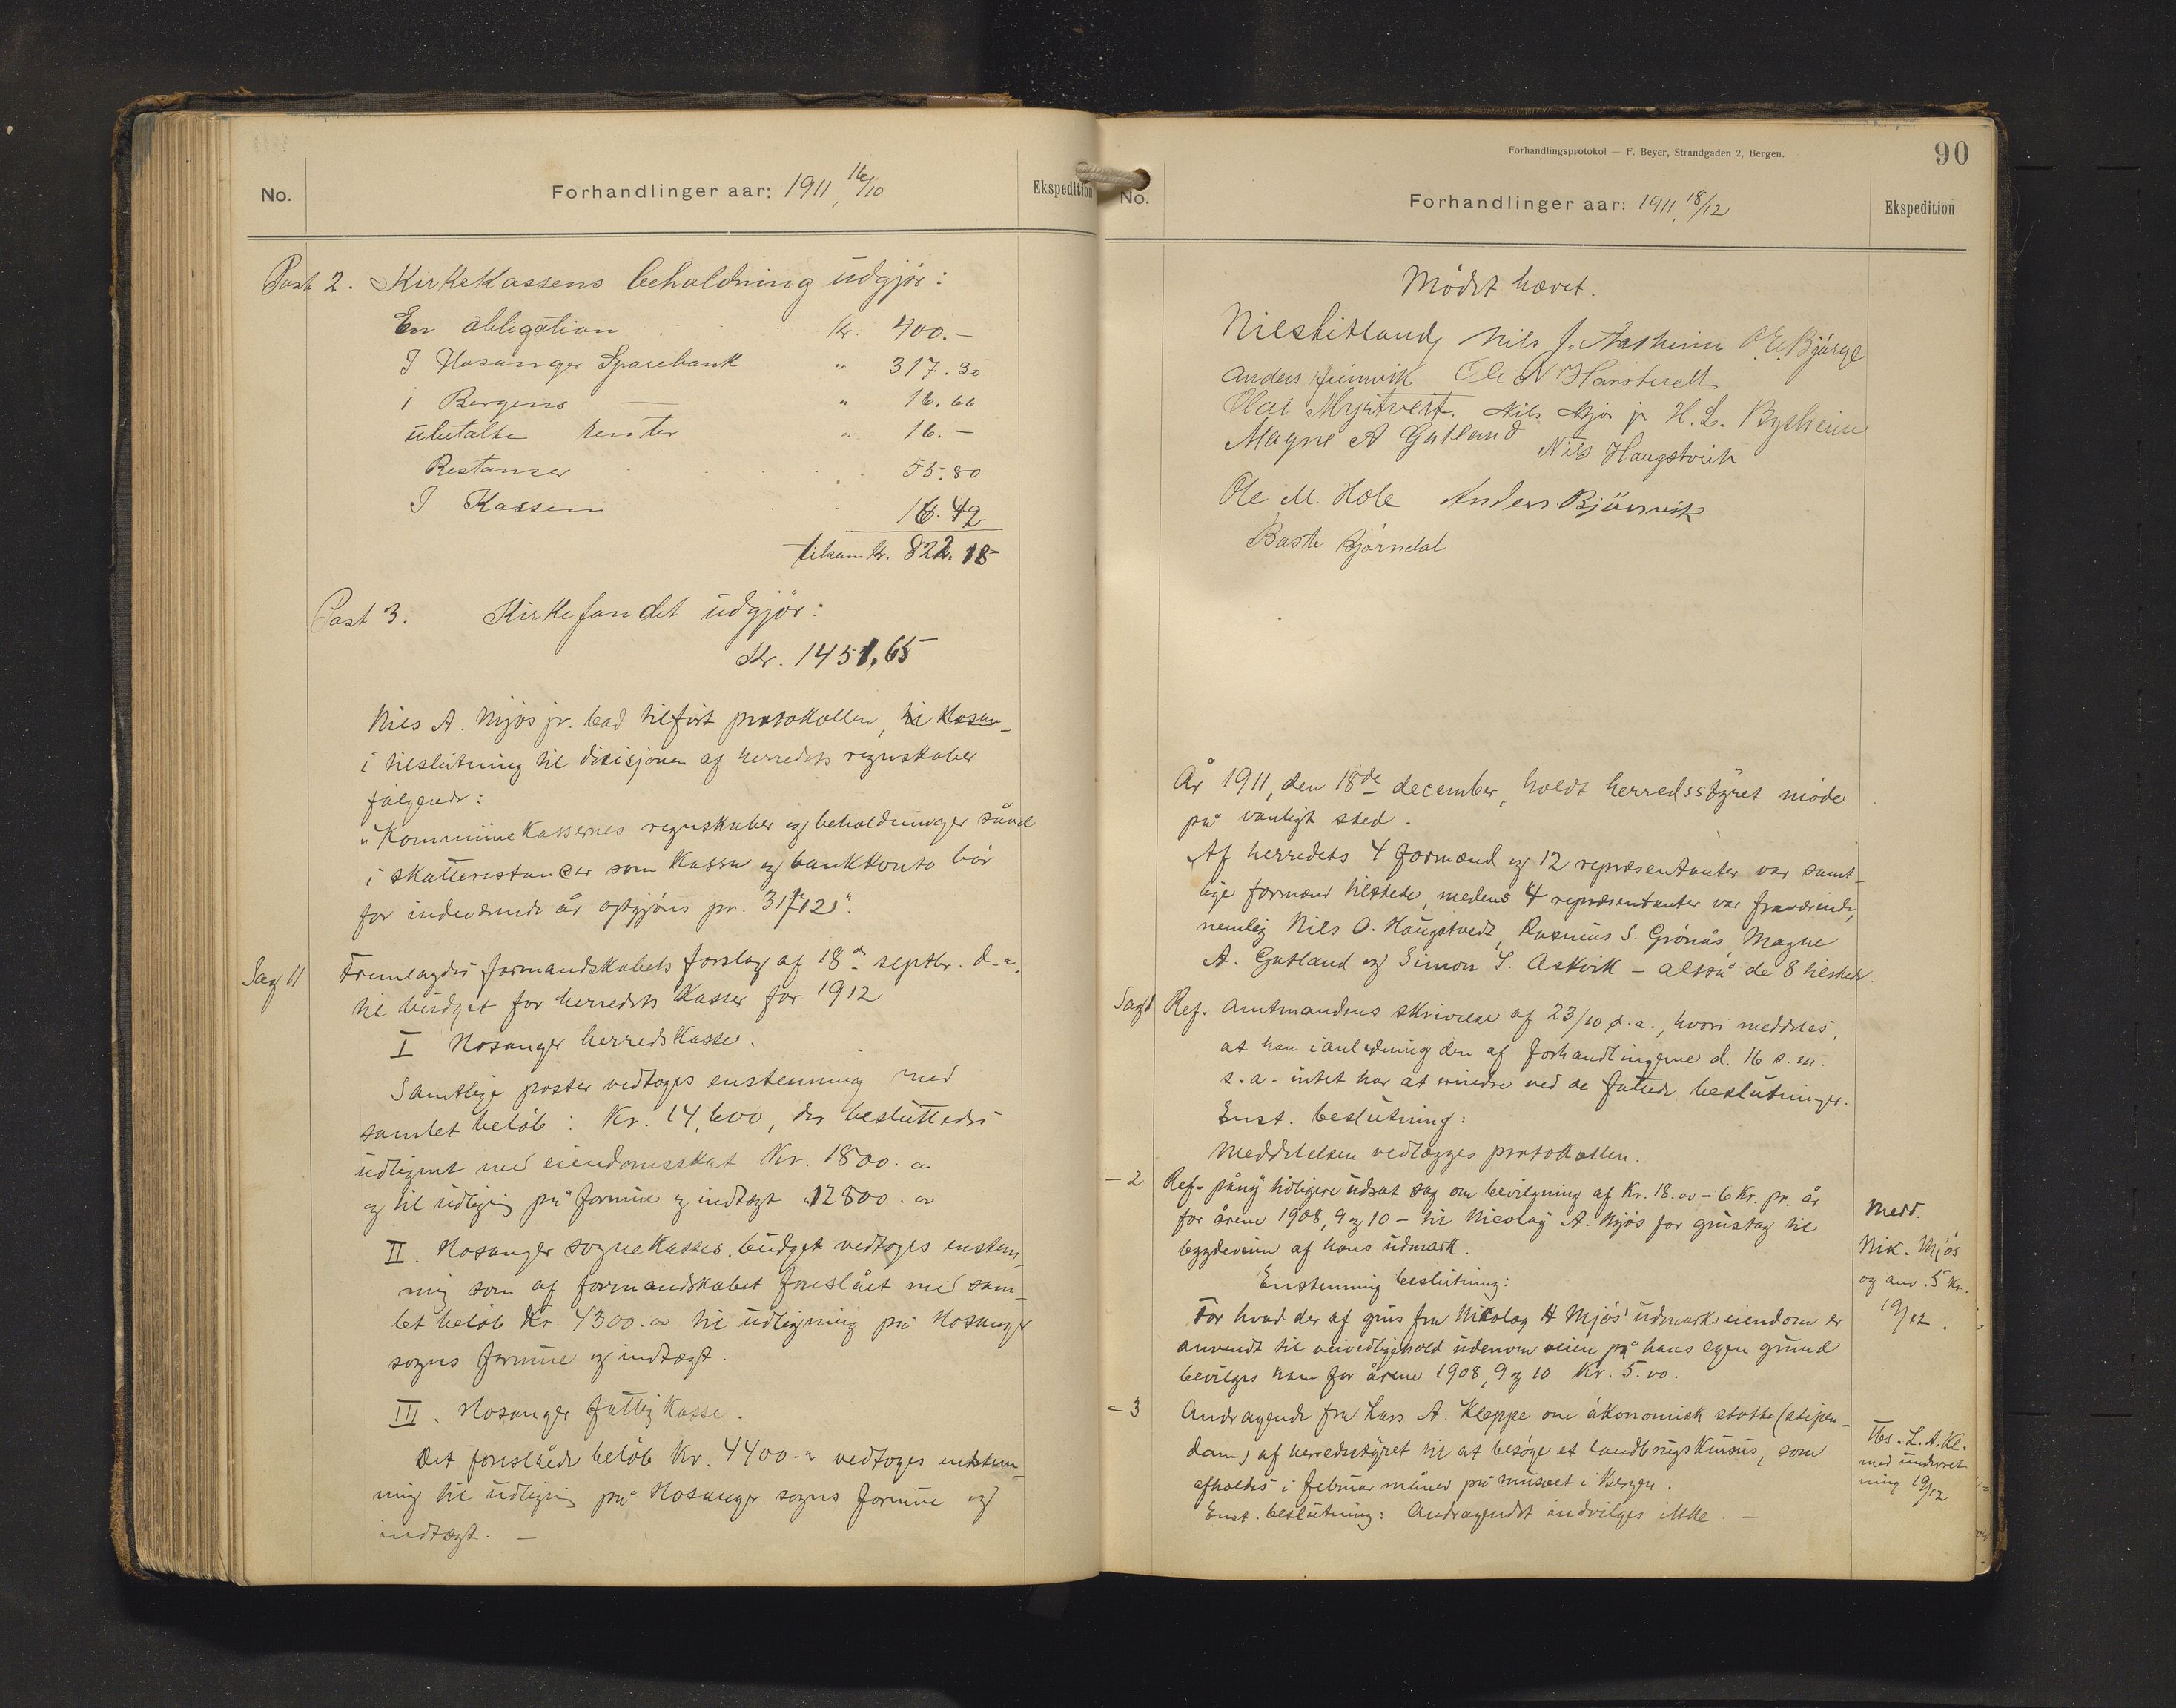 No.
Forhandlinger aar: 1911, 16/10
Ekspedition
Post 2. Kirkekassens beholdning udgjør:
En obligation kr. 400.-
I Hosanger Sparebank " 317.30
i Bergens — " 16.66
ubetalte renter " 16.-
Restanser 55.80
I Kassen 16.42
tilsam kr. 822.18
Post 3. Kirkefondet udgjør:
Kr. 1451,65
Nils A. Mjøs jr. bad tilført protokollen,
i tilslutning til disisjonen af herredets regnskaber
følgende:
"Kommunekassernes regnskaber og beholdninger såvel
i skatterestancer som kassa og bankkonto bør
for indeværende år opgjøres pr. 31/12".
Sag 11
Fremlagdes formandskabets forslag af 18de septbr. d.a.
til budget for herredets kasser for 1912
I Hosanger herredskasse.
Samtlige poster vedtoges enstemmig med
samlet beløb: Kr. 14,600, der besluttedes
udlignet med eiendomsskat Kr. 1800.00
og til udligning på formue og indtægt " 12800.00
II. Hosanger sognekasses budget vedtoges enstem-
mig som af formandskabet foreslået med sam-
let beløb Kr. 4300.00 til udligning på Hosanger
sogns formue og indtægt.
III. Hosanger fattigkasse.
Det foreslåede beløb Kr. 4400.00 vedtoges enstem-
mig til udligning på Hosanger sogns formue og
indtægt. —
Forhandlingsprotokol — F. Beyer, Strandgaden 2, Bergen.
90
No.
Forhandlinger aar: 1911, 18/12
Ekspedition
Mødet hævet.
Nils Nils J. Aasheim O. E. Bjørge
Anders Ole N
Olai Nils Mjøs jr H. L. Bysheim
Magne A Gatland Nils Haugstvedt
Ole M. Hole Anders Bjørnvik
Baste Bjørndal
År 1911, den 18de december, holdt herredsstyret møde
på vanligt sted.
Af herredets 4 formænd og 12 repræsentanter var samt-
lige formænd tilstede, medens 4 repræsentanter var fraværende,
nemlig Nils O. Haugstvedt, Rasmus S. Grønås, Magne
A. Gatland og Simon S. Askvik – altså de 8 tilstede.
Sag 1 Ref. amtmandens skrivelse af 23/10 d.a., hvori meddeles,
at han i anledning den af forhandlingerne d. 16 s.m.
s.a. intet har at erindre ved de fattede beslutninger.
Enst. beslutning:
Meddelelsen vedlægges protokollen.
– 2 Ref. påny tidligere udsat sag om bevilgning af Kr. 18.00 – 6 Kr. pr. år
for årene 1908, 9 og 10 – til Nicolay A. Mjøs for grustag til
bygdeveien af hans udmark.
Enstemmig beslutning:
For hvad der af grus fra Nicolay A Mjøs' udmarkseiendom er
anvendt til veivedligehold udenom veien på hans egen grund
bevilges ham for årene 1908, 9 og 10 Kr. 5.00.
Medd.
Nik. Mjøs
og anv. 5 Kr.
19/12.
– 3 Andragende fra Lars A. Kleppe om økonomisk støtte (stipen-
dum) af herredsstyret til at besøge et landbrugskursus, som
afholdes i februar måned på museet i Bergen.
Enst. beslutning: Andragendet indvilges ikke. —
Tbs. L. A. Kl.
med underret-
ning 19/12